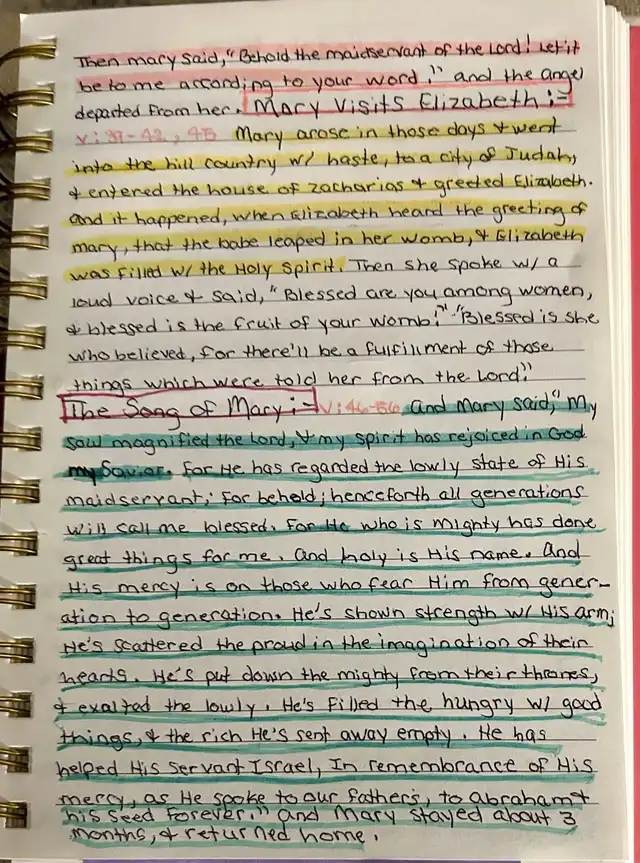 Then mary said, "Behold the maidservant of the Lord! Let it
be to me according to your word." and the angel
departed from her. Mary Visits Elizabeth:-
v:39-42, 45 Mary arose in those days & went
into the hill country w/ haste, to a city of Judah,
& entered the house of zacharias & greeted Elizabeth.
and it happened, when Elizabeth heard the greeting of
mary, that the babe leaped in her womb, & Elizabeth
was filled w/ the Holy Spirit. Then she spoke w/ a
loud voice & said, "Blessed are you among women,
& blessed is the fruit of your womb!" "Blessed is she
who believed, for there'll be a fulfillment of those
things which were told her from the Lord."
The Song of Mary:- v:46-56 and Mary said, "My
soul magnified the Lord, & my spirit has rejoiced in God
my Savior. For He has regarded the lowly state of His
maidservant; For behold; henceforth all generations
will call me blessed. For He who is mighty has done
great things for me. and holy is His name. And
His mercy is on those who fear Him from gener-
ation to generation. He's shown strength w/ His arm;
He's scattered the proud in the imagination of their
hearts. He's put down the mighty from their thrones,
& exalted the lowly. He's filled the hungry w/ good
things, & the rich He's sent away empty. He has
helped His servant Israel, In remembrance of His
mercy, as He spoke to our fathers, to Abraham &
his seed forever." and Mary stayed about 3
months, & returned home.